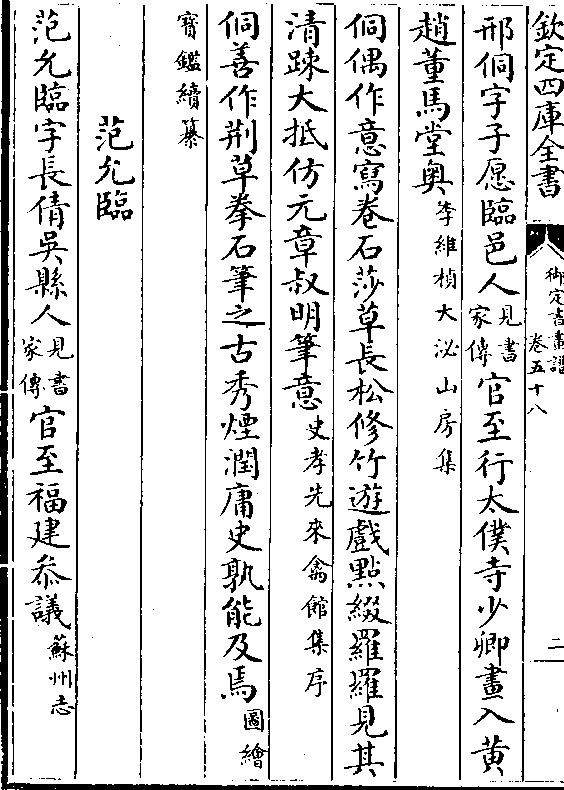 欽定四庫全書
御定書畫譜
卷五十八
二
邢侗字子愿臨邑人見書家傳官至行太僕寺少卿畫入黄
趙董馬堂奥李維楨大泌山房集
侗偶作意寫卷石莎草長松修竹遊戲㸃綴羅羅見其
清踈大抵仿元章叔明筆意史孝先來禽館集序
侗善作荆草拳石筆之古秀煙潤庸史孰能及焉圖繪
寳鑑續纂
范允臨
范允臨字長倩吳縣人見書家傳官至福建叅議蘇州志